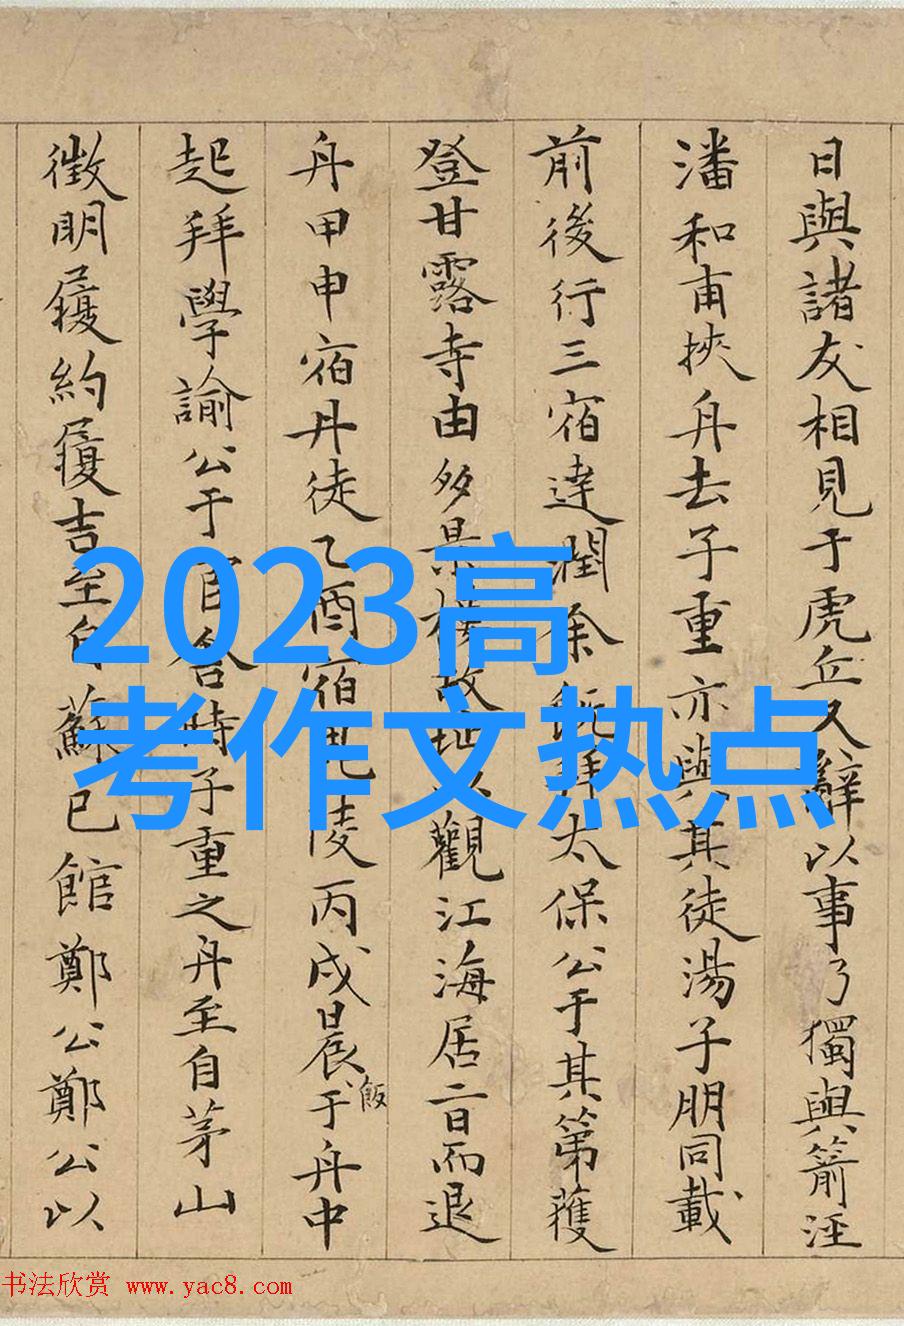 日與諸友相見于虎丘又辭以事乃獨與箭涇
潘和甫挾舟去子重亦與其徒湯子朋同載
前後行三宿達潤徐既拜太保公于其第獲
登甘露寺由多景樓故址以觀江海居二日而退
舟甲申宿丹徒乙酉宿毘陵丙戌晨飯于舟中
起拜學諭公于官舍時子重之舟至自茅山
徵明履約履吉至自蘇已館鄭公鄭公以
2023高
考作文热点
书法欣赏 www.yac8.com